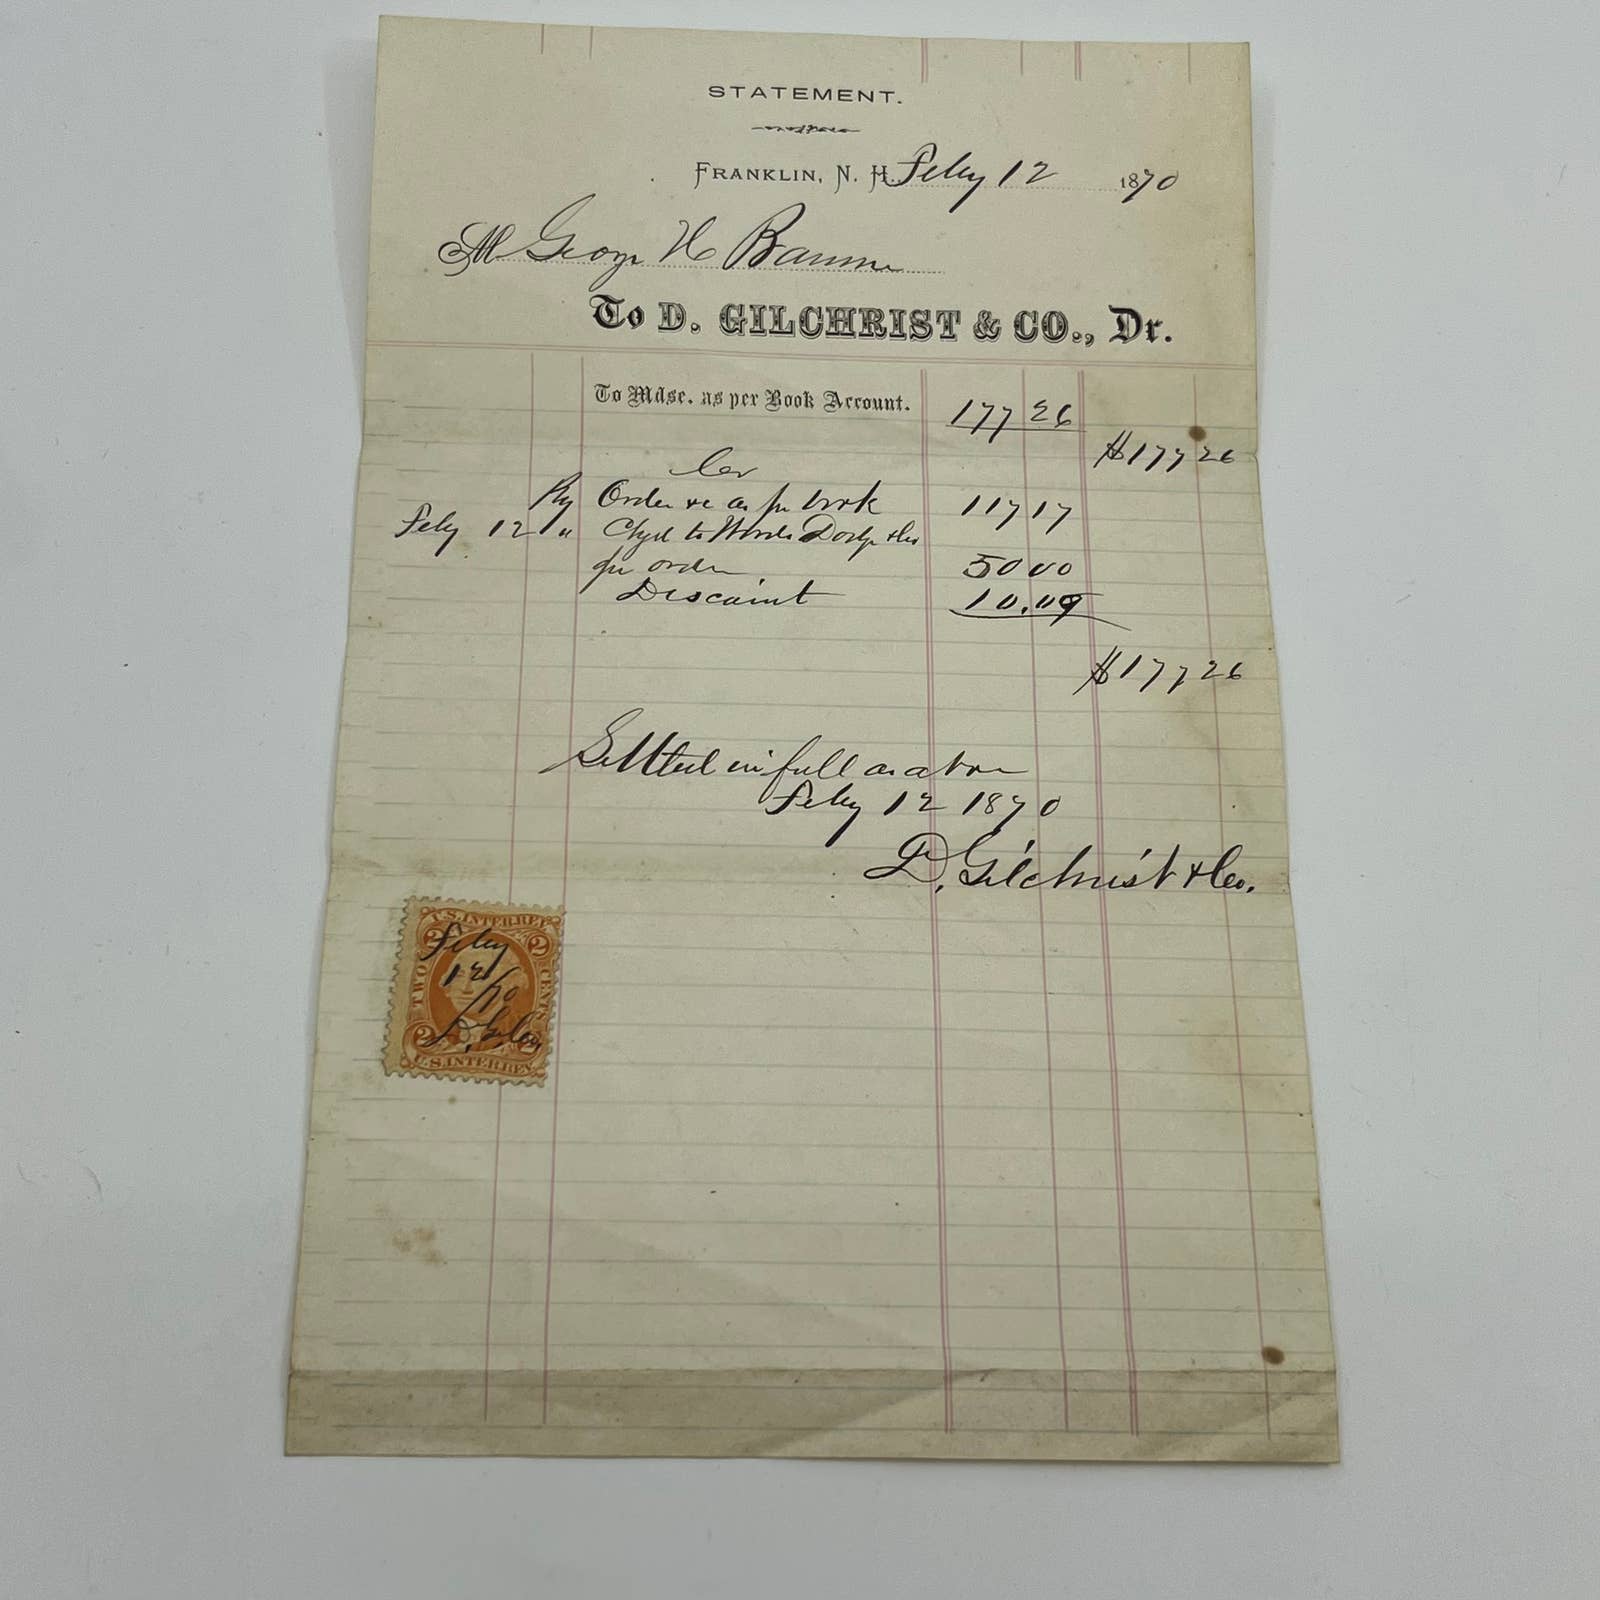 STATEMENT.
FRANKLIN, N. H. Feby 12 1870
M George H
To D. GILCHRIST & CO., Dr.
To Mdse. as per Book Account. 177 26
$177 26
Cr
By Order &c as per book 117 17
Feby 12 " Chgd to Dodge & Co
per order 50 00
Discount 10.09
$177 26
Settled in full as above
Feby 12 1870
D. Gilchrist & Co.
U.S. INTER. REV.
2 2
TWO CENTS
Feby
12/70
D. G. & Co.
2 2
U.S. INTER. REV.